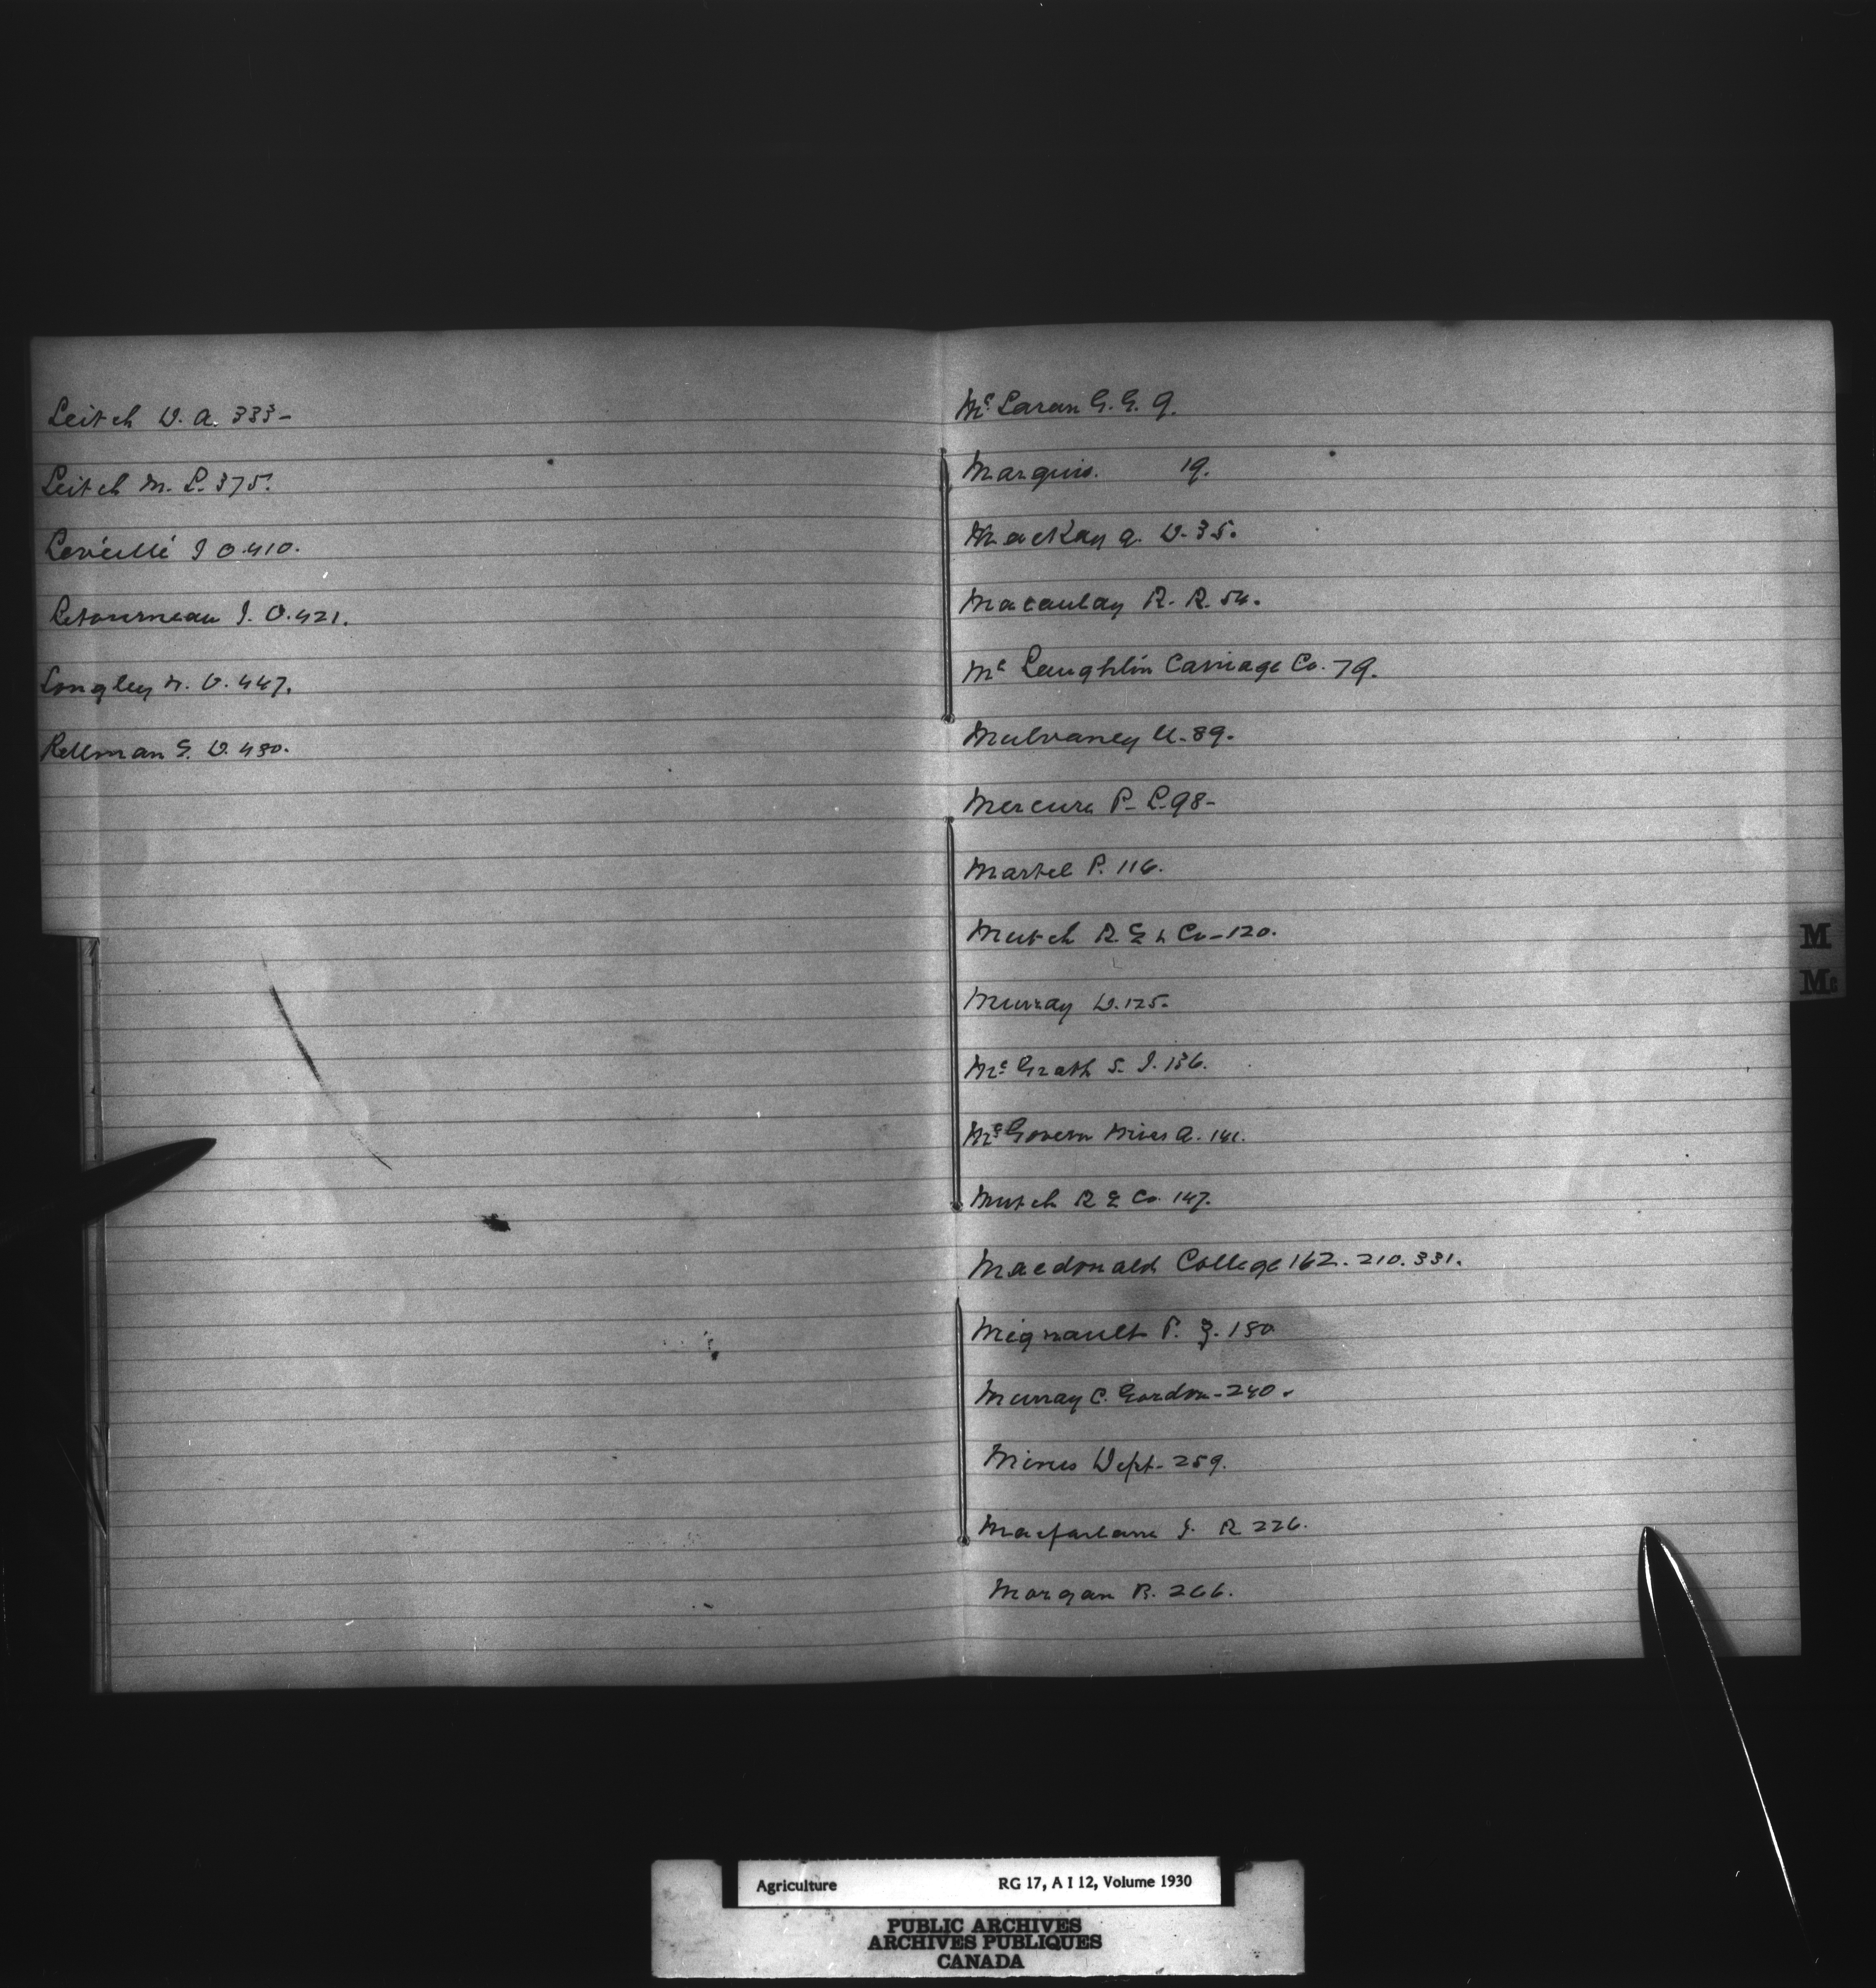 Leitch D. A. 333-
Leitch M. L. 375.
Léveillé J O. 410.
Letourneau J. O. 421.
Longley W. V. 447.
Lellman G. D. 480.
Mc Laran G. G. 9.
Marquis. 19.
MacKay A. D. 35.
Macaulay R. R. 54.
Mc Laughlin Carriage Co. 79.
Mulvaney U. 89.
Mercure P- L. 98-
Martel P. 116.
Mutch R. E & Co-120.
Murray D. 125.
Mc Grath S. J. 136.
Mc Govern Miss A. 141.
Mutch R E Co. 147.
Macdonald College 162. 210. 331.
Mignault P. J. 180
Murray C. Gordon-240.
Mines Dept- 259.
Macfarlane J. R 226.
Morgan R. 266.
M
Mc
Agriculture RG 17, A I 12, Volume 1930
PUBLIC ARCHIVES
ARCHIVES PUBLIQUES
CANADA